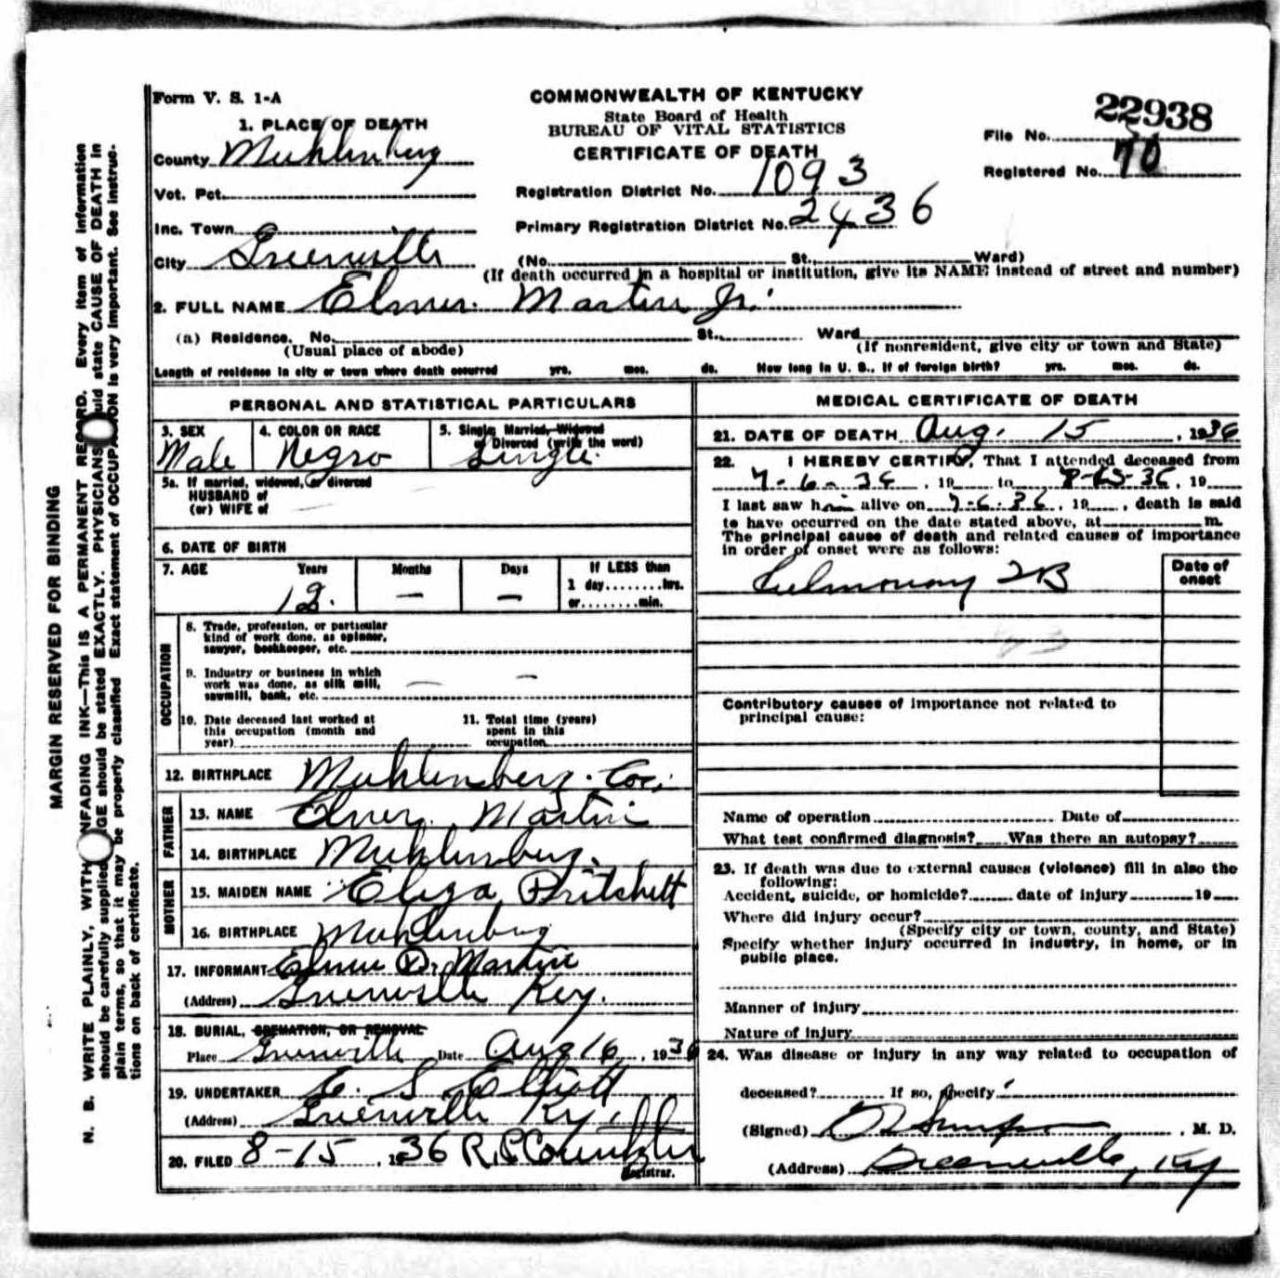 Form V. S. 1-A
COMMONWEALTH OF KENTUCKY
State Board of Health
BUREAU OF VITAL STATISTICS
CERTIFICATE OF DEATH
File No. 22938
Registered No. 70
1. PLACE OF DEATH
County Muhlenberg
Vot. Pct.
Inc. Town
City Greenville
Registration District No. 1093
Primary Registration District No. 2436
(No. St. Ward)
(If death occurred in a hospital or institution, give its NAME instead of street and number)
2. FULL NAME Elmer Martin Jr.
(a) Residence. No. St. Ward
(Usual place of abode) (If nonresident, give city or town and State)
Length of residence in city or town where death occurred yrs. mos. ds. How long in U. S., if of foreign birth? yrs. mos. ds.
PERSONAL AND STATISTICAL PARTICULARS
3. SEX 4. COLOR OR RACE 5. Single, Married, Widowed
or Divorced (write the word)
Male Negro Single
5a. If married, widowed, or divorced
HUSBAND of
(or) WIFE of
6. DATE OF BIRTH
7. AGE Years Months Days If LESS than
1 day........hrs.
or........min.
12. — —
OCCUPATION
8. Trade, profession, or particular
kind of work done, as spinner,
sawyer, bookkeeper, etc.
9. Industry or business in which
work was done, as silk mill,
sawmill, bank, etc. — —
10. Date deceased last worked at
this occupation (month and
year)
11. Total time (years)
spent in this
occupation
12. BIRTHPLACE Muhlenberg. Co.
FATHER
13. NAME Elmer Martin
14. BIRTHPLACE Muhlenberg.
MOTHER
15. MAIDEN NAME Eliza Pritchett
16. BIRTHPLACE Muhlenberg
17. INFORMANT Elmer D. Martin
(Address) Greenville Ky.
18. BURIAL, CREMATION, OR REMOVAL
Place Greenville Date Aug 16, 1936
19. UNDERTAKER E. S. Elliott
(Address) Greenville Ky.
20. FILED 8-15, 1936
Registrar.
MEDICAL CERTIFICATE OF DEATH
21. DATE OF DEATH Aug. 15, 1936
22. I HEREBY CERTIFY, That I attended deceased from
7-6-36, 19 to 8-15-36, 19
I last saw him alive on 7-6-36, 19, death is said
to have occurred on the date stated above, at m.
The principal cause of death and related causes of importance
in order of onset were as follows:
Date of
onset
Pulmonary TB
Contributory causes of importance not related to
principal cause:
Name of operation Date of
What test confirmed diagnosis? Was there an autopsy?
23. If death was due to external causes (violence) fill in also the
following:
Accident, suicide, or homicide? date of injury 19
Where did injury occur?
(Specify city or town, county, and State)
Specify whether injury occurred in industry, in home, or in
public place.
Manner of injury
Nature of injury
24. Was disease or injury in any way related to occupation of
deceased? If so, specify
(Signed) , M. D.
(Address) Greenville, Ky
MARGIN RESERVED FOR BINDING
N. B. WRITE PLAINLY, WITH UNFADING INK—THIS IS A PERMANENT RECORD. Every item of information
should be carefully supplied. AGE should be stated EXACTLY. PHYSICIANS should state CAUSE OF DEATH in
plain terms, so that it may be properly classified. Exact statement of OCCUPATION is very important. See instruc-
tions on back of certificate.